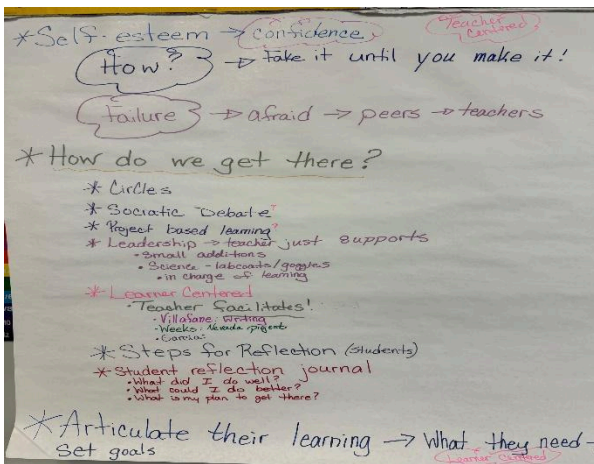 *Self-esteem → confidence Teacher Centered
How? → fake it until you make it!
Failure → afraid → peers → teachers
*How do we get there?
* Circles
* Socratic Debate?
* Project based learning?
* Leadership → teacher just supports
• Small additions
• Science - labcoats/goggles
• in charge of learning
* Learner Centered
• Teacher facilitates!
• Villafane: Writing
• Weeks: Nevada project
• Garcia:
* Steps for Reflection (students)
* Student reflection journal
• What did I do well?
• What could I do better?
• What is my plan to get there?
*Articulate their learning → What they need -
Set goals Learner Centered